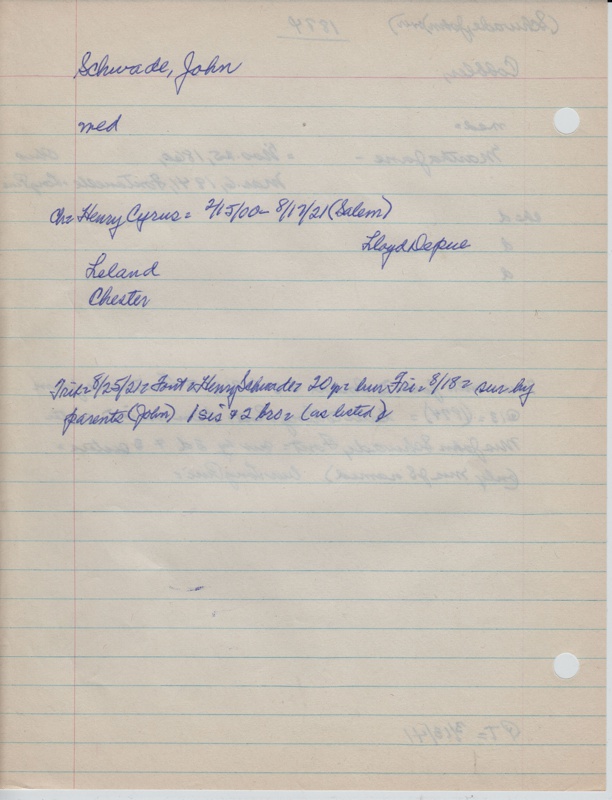 Schwade, John
med
Ch= Henry Cyrus = 2/15/00 - 8/17/21 (Salem)
Lloyd Depue
Leland
Chester
Trib = 8/25/21 = Font = Henry Schwade = 20 yr = bur Fri = 8/18 = sur by
parents (John) 1 sis + 2 bros = (as listed)